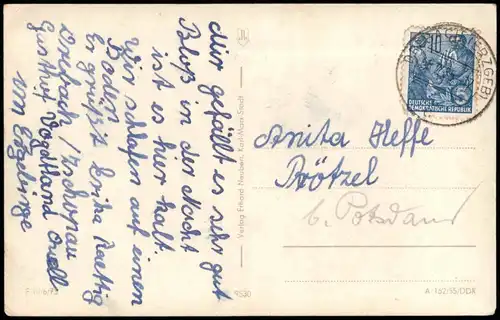 Mir gefällt es sehr gut
Bloß in der Nacht
ist es hier kalt.
Wir schlafen auf einen
Boden
Es grüßt Erika
Drebach / Zschopau
Gasthof Vogtland
im Erzgebirge
Verlag Erhard Neubert, Karl-Marx-Stadt
9530
10
DEUTSCHE
DEMOKRATISCHE REPUBLIK
(ERZGEB)
Anita Heffe
Prötzel
b. Potsdam
A 162/55/DDR